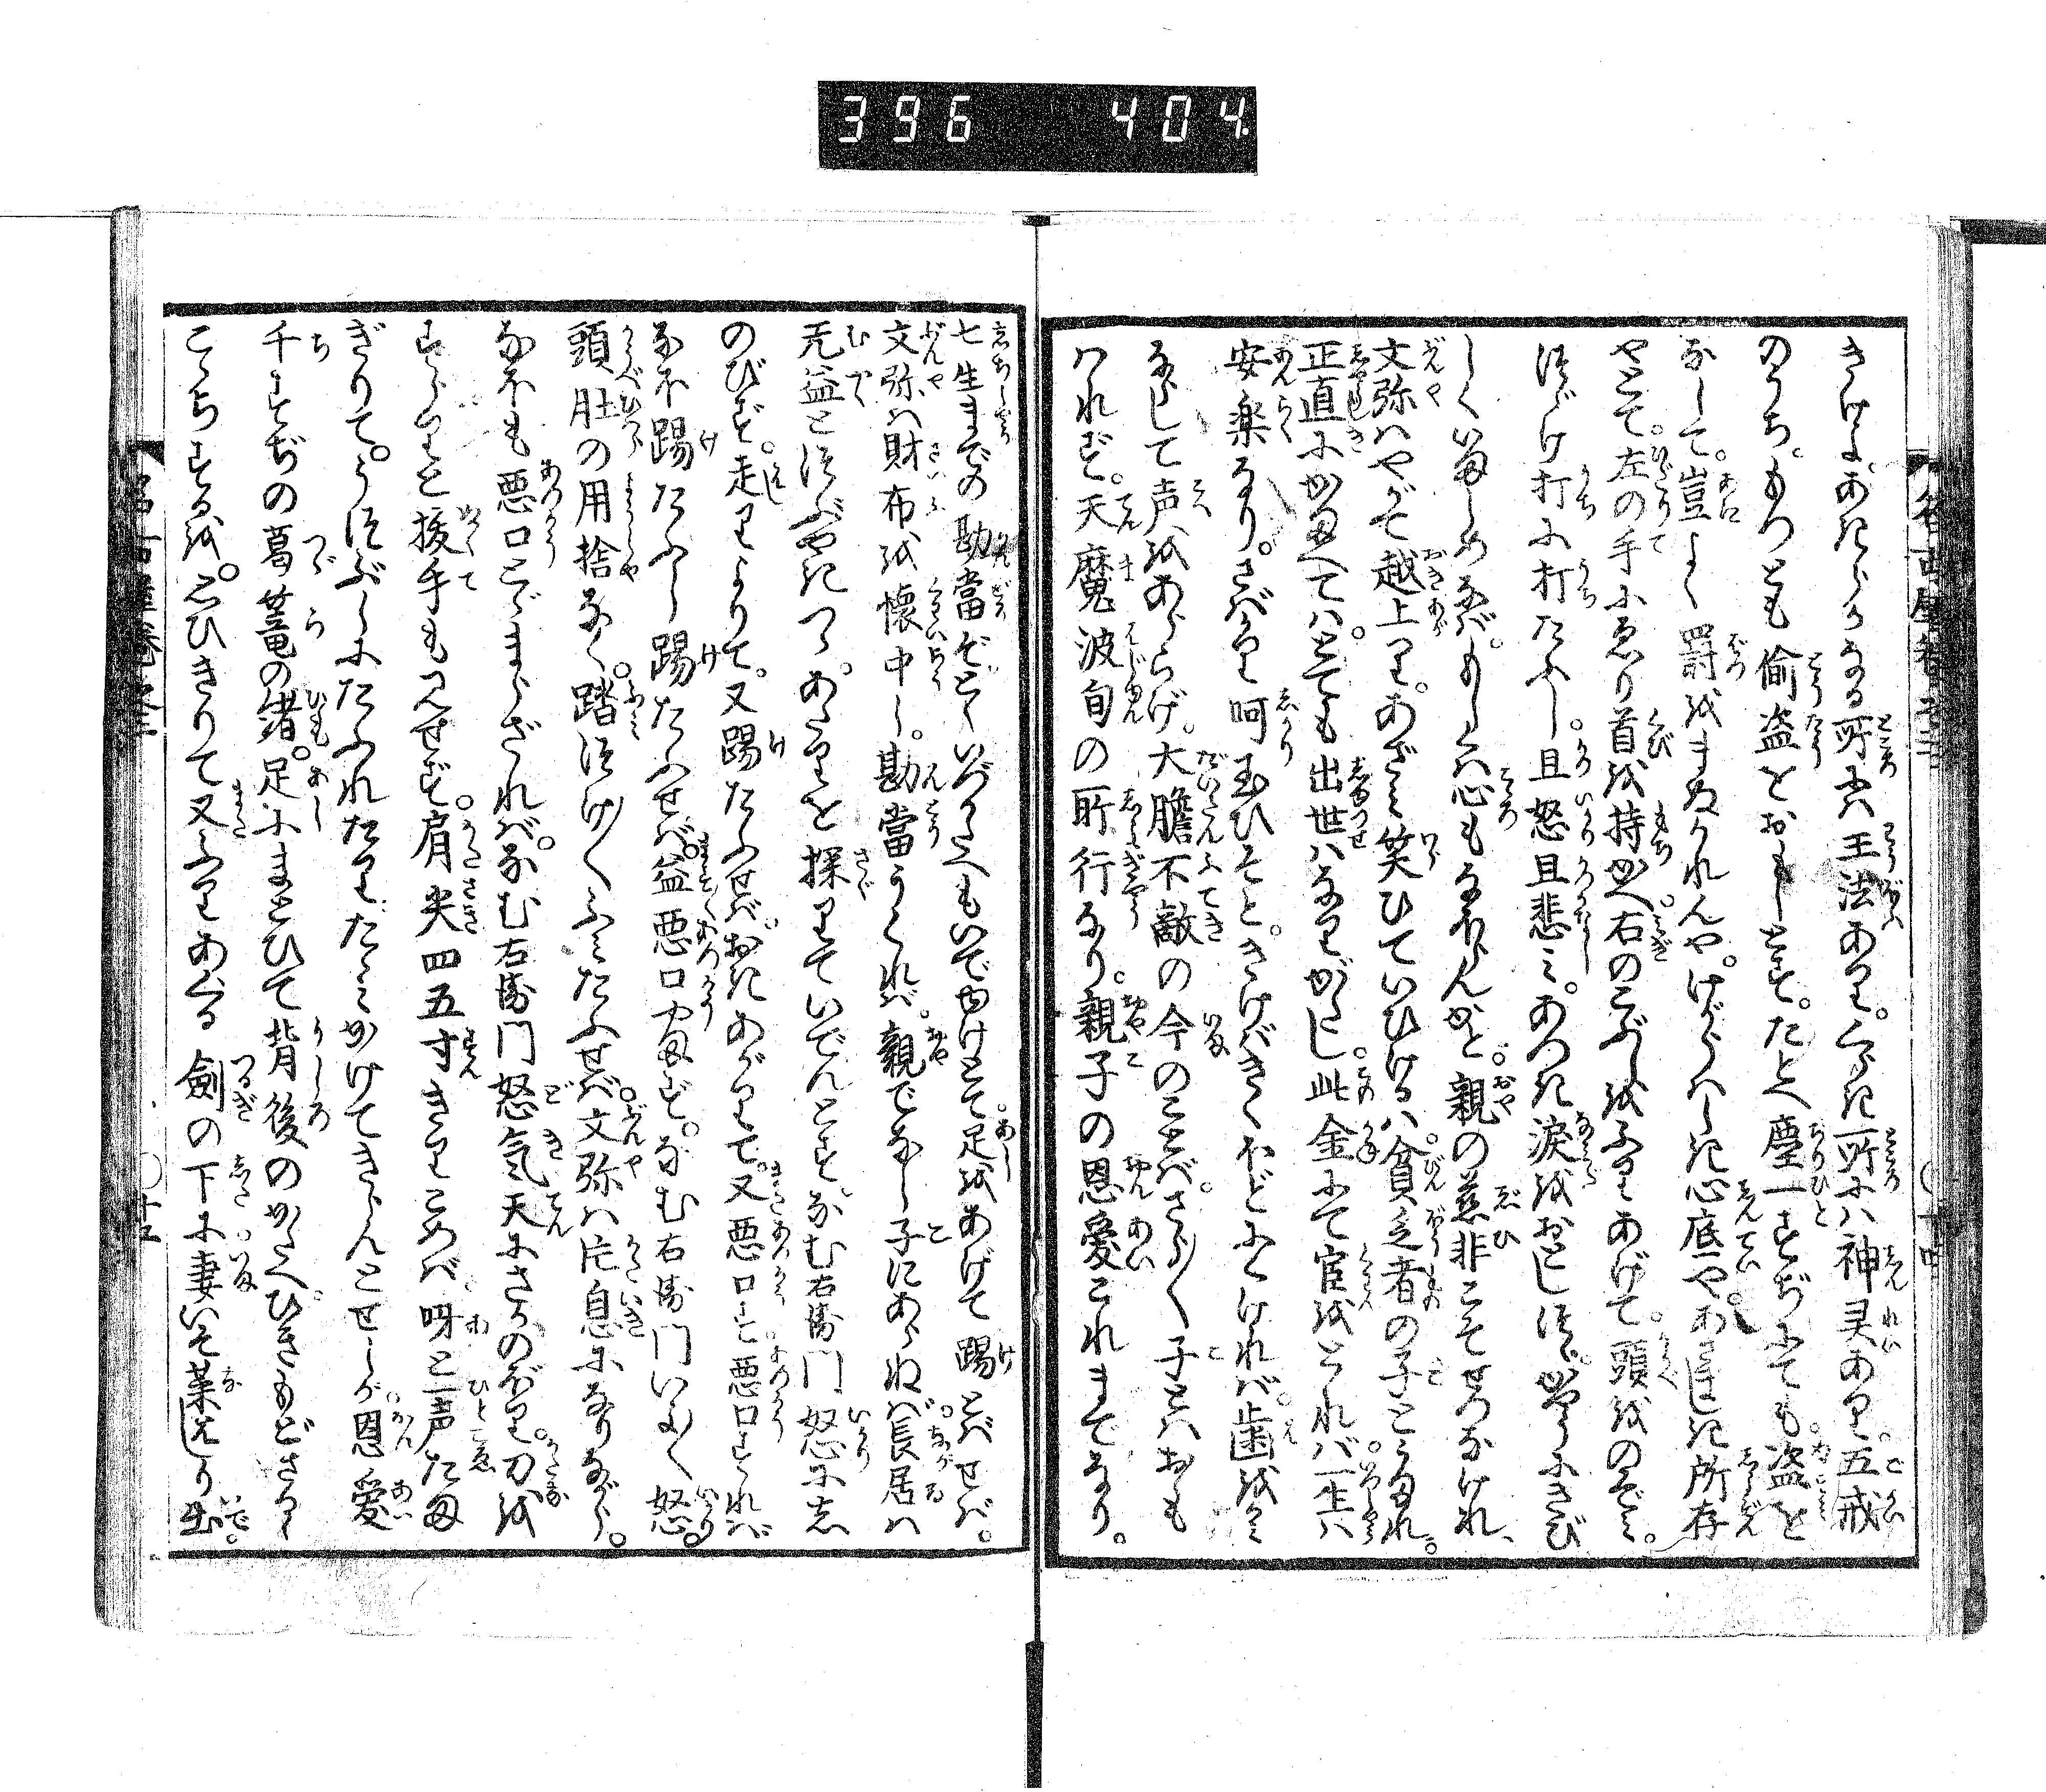 396 404
きけよ。あきらかなる所には王法あり。くらき所には神灵あり。五戒
のうち。もつとも偸盗をおもしとす。たとへ塵一すぢにても。盗を
なして。豈よく罰をまぬかれんや。けがらはしき心底や。あさましき所存
やとて。左の手にゑり首を持かへ。右のこぶしをふりあげて。頭をのぞみ。
つゞけ打に打たふし。且怒且悲み。あつき涙をおとしつゝ。かやうにきび
しくいましめなば。もしは心もなほらんかと。親の慈非こそせつなけれ、
文弥はやがて越上り。あざみ笑ひていひけるは。貧乏者の子とうまれ。
正直にかまへては。とても出世はなりがたし。此金にて官をとれば一生は
安楽なり。さばかり呵玉ひそと。きけばきくほどにくければ。歯をくひ
ならして声をあらゝげ。大膽不敵の今のことば。さら〱子とはおも
はれず。天魔波旬の所行なり。親子の恩愛これまでなり。
七生までの勘當ぞとく いづくへもいでゆけとて。足をあげて踢とばせば。
文弥は財布を懐中し。勘當うくれば。親でなし子にあらねば。長居は
无益とつぶやきつゝ。あたりを探りていでんとす。なむ右衛門怒にし
のびず。走りよりて。又踢たふせば。おきあがりて。又悪口す。悪口すれば
なほ踢たふし踢たふせば。益悪口やまず。なむ右衛門いよ〱怒。
頭肚の用捨なく。踏つけ〱ふみたふせば。文弥は片息になりながら。
なほも悪口とゞまらざれば。なむ右衛門怒気天にさかのぼり。刀を
すらりと援手も見せず。肩尖四五寸きりこめば。呀と一声たま
ぎりて。うつぶしにたふれたり。たゝみかけてきらんとせしが。恩愛
千すぢの葛篭の緒。足にまとひて背後のかたへ。ひきもどさるゝ
こゝちするを。思ひきりて又ふりあぐる 劍の下に。妻いそ菜はしり出。